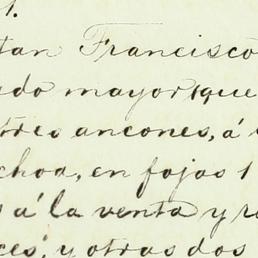 1.
tan Francisco
do mayor, que
tres ancones, á
choa, en fojas 1
á la venta y r
ces, y otras dos